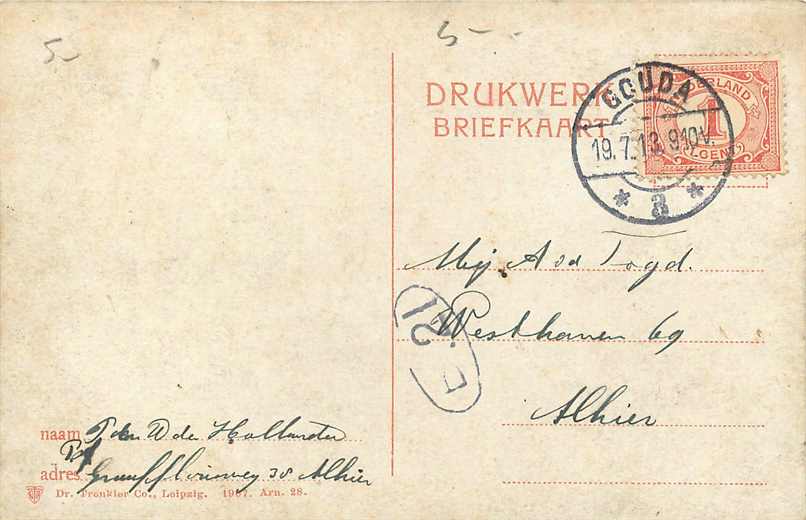 5-
5--
DRUKWERK
BRIEFKAART
GOUDA
19.7.13.9-10V.
* a *
NEDERLAND
1
CENT
Mej. A v d
Westhaven 69
Alhier
21
naam P W de Hollander
adres 38 Alhier
Dr. Trenkler Co., Leipzig. 1907. Arn. 28.